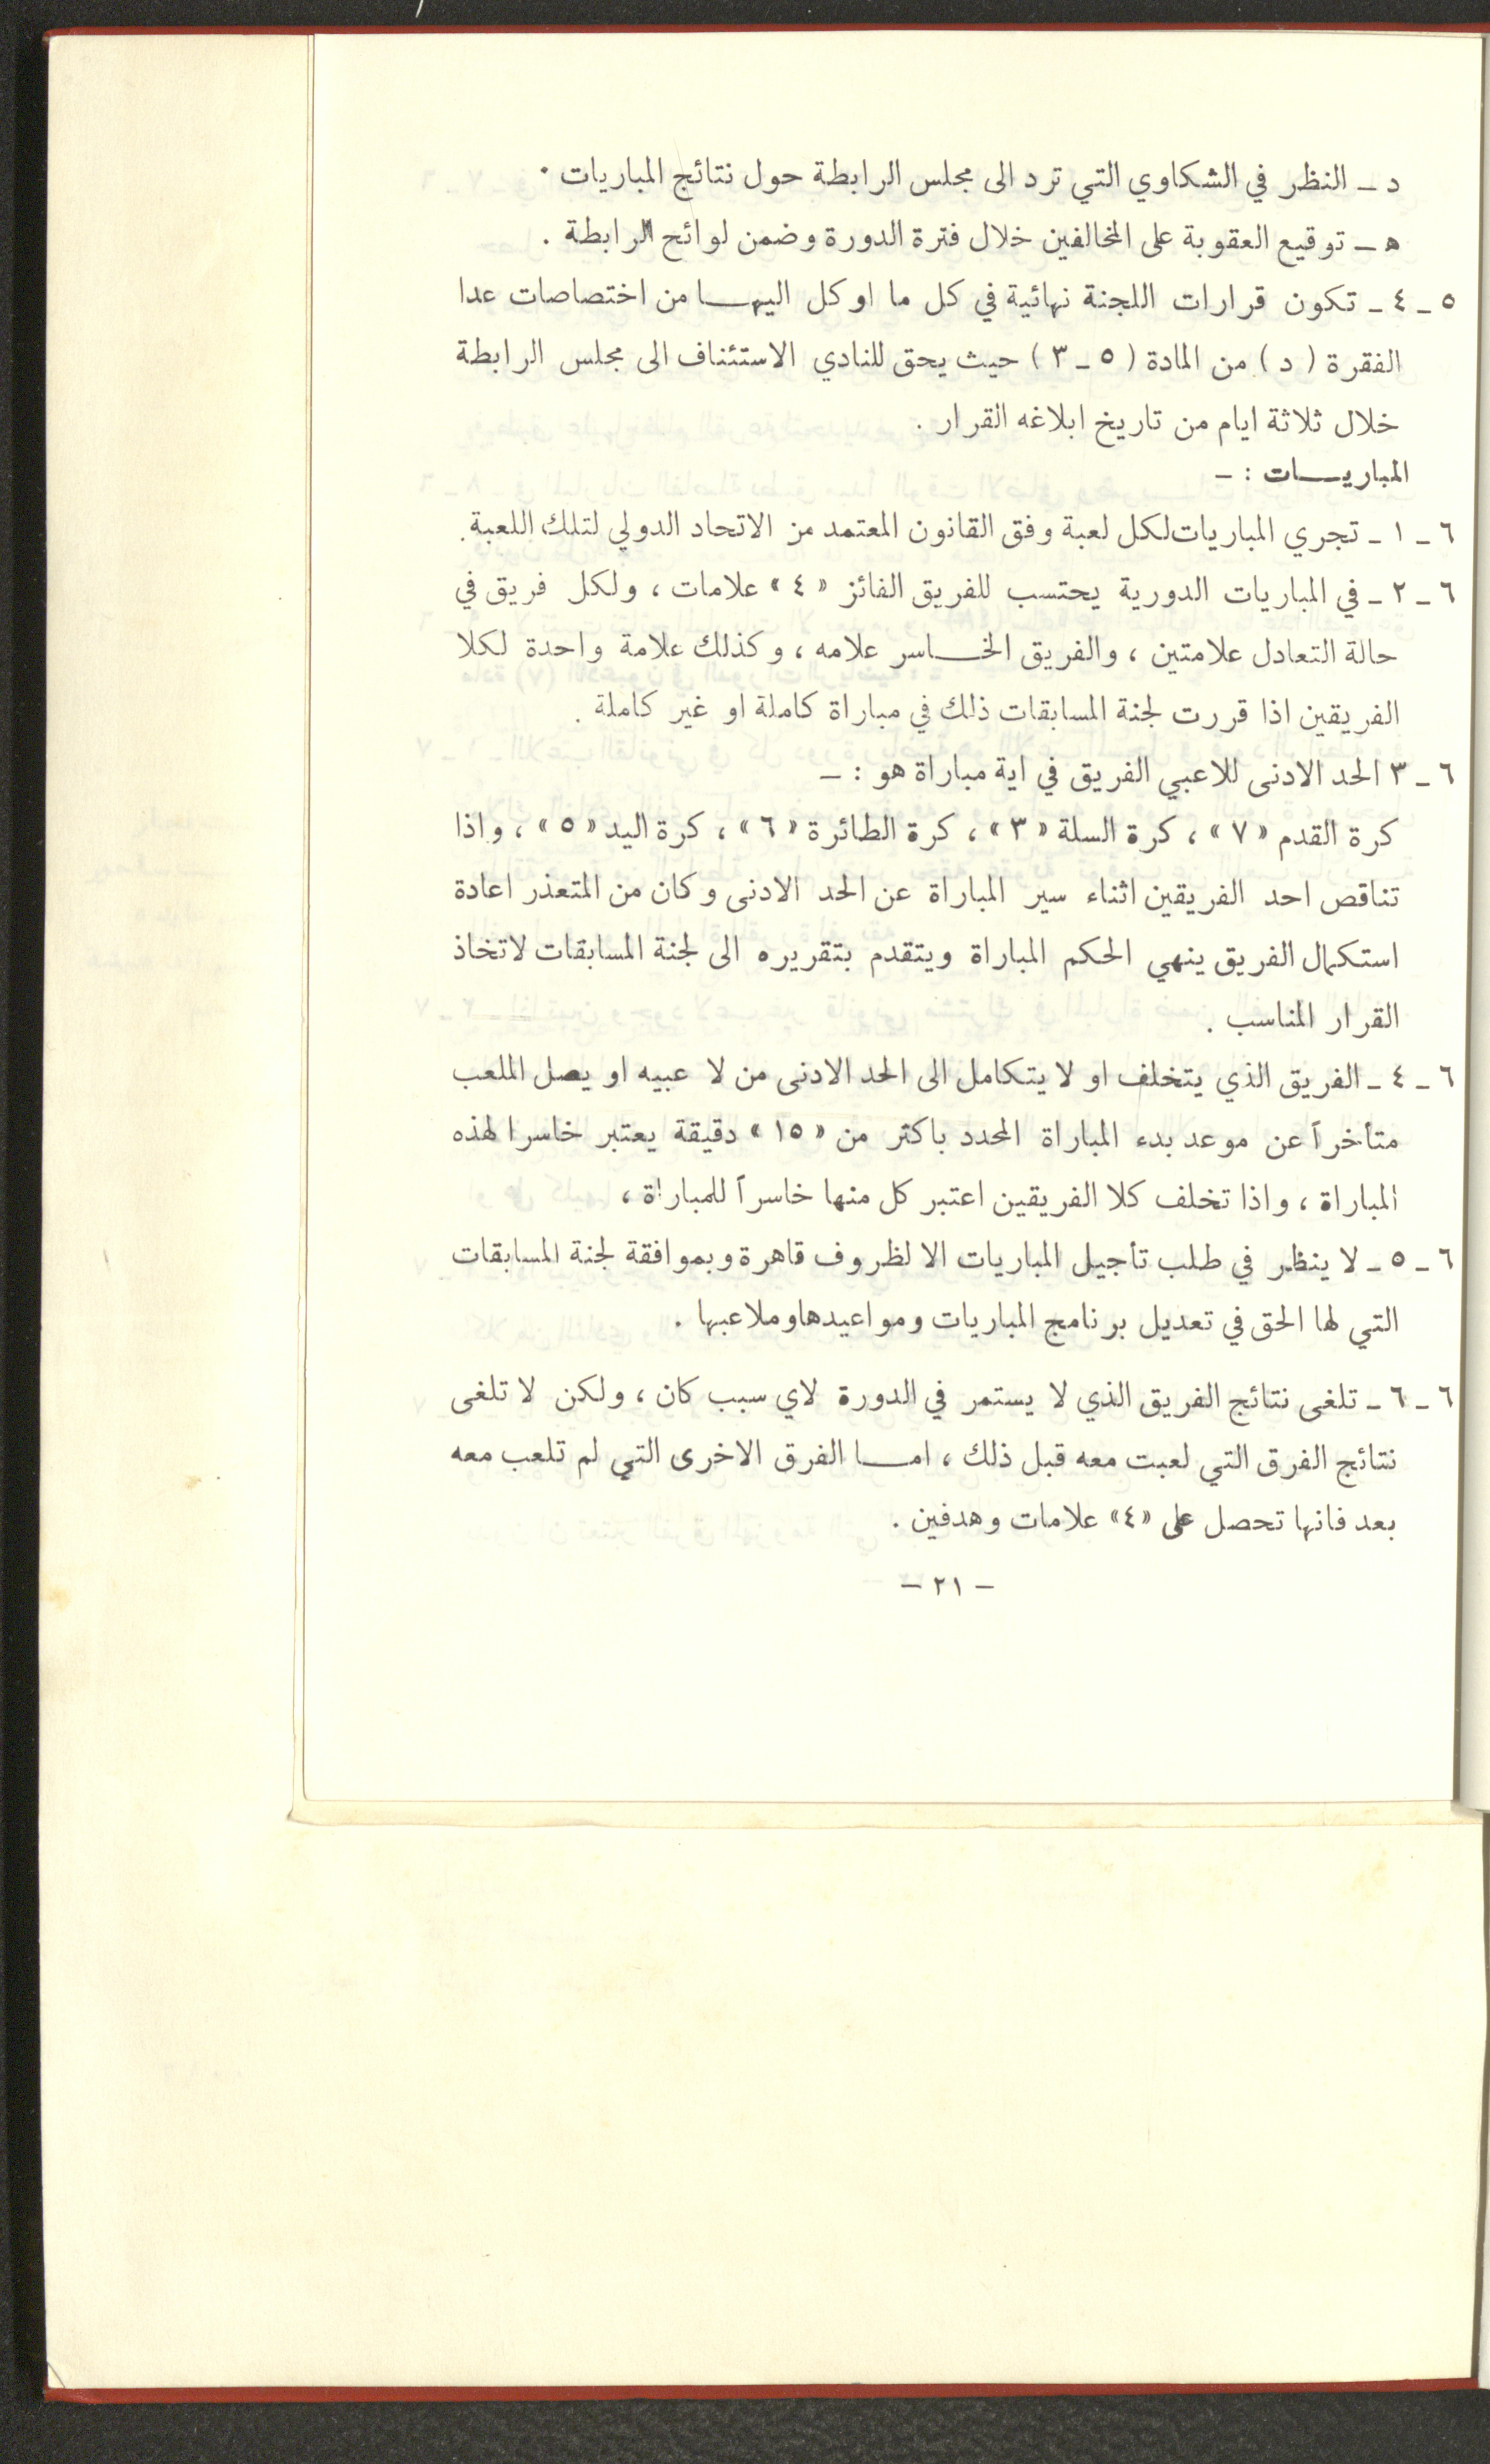 د ــ النظر في الشكاوي التي ترد الى مجلس الرابطة حول نتائج المباريات .
ه ــ توقيع العقوبة على المخالفين خلال فترة الدورة وضمن لوائح الرابطة .
٥ ـ ٤ ـ تكون قرارات اللجنة نهائية في كل ما اوكل اليهـــا من اختصاصات عدا
الفقرة ( د ) من المادة ( ٥ ـ ٣ ) حيث يحق للنادي الاستئناف الى مجلس الرابطة
خلال ثلاثة ايام من تاريخ ابلاغه القرار .
المباريـــات : ــ
٦ ـ ١ ـ تجري المباريات لكل لعبة وفق القانون المعتمد من الاتحاد الدولي لتلك اللعبة.
٦ ـ ٢ ـ في المباريات الدورية يحتسب للفريق الفائز « ٤ » علامات ، ولكل فريق في
حالة التعادل علامتين ، والفريق الخـــاسر علامه ، وكذلك علامة واحدة لكلا
الفريقين اذا قررت لجنة المسابقات ذلك في مباراة كاملة او غير كاملة .
٦ ـ ٣ الحد الادنى للاعبي الفريق في اية مباراة هو : ــ
كرة القدم « ٧ » ، كرة السلة « ٣ » ، كرة الطائرة « ٦ » ، كرة اليد « ٥ » ، واذا
تناقص احد الفريقين اثناء سير المباراة عن الحد الادنى وكان من المتعذر اعادة
استكمال الفريق ينهي الحكم المباراة ويتقدم بتقريره الى لجنة المسابقات لاتخاذ
القرار المناسب .
٦ ـ ٤ ـ الفريق الذي يتخلف او لا يتكامل الى الحد الادنى من لا عبيه او يصل الملعب
متأخراً عن موعد بدء المباراة المحدد باكثر من « ١٥ » دقيقة يعتبر خاسرا لهذه
المباراة ، واذا تخلف كلا الفريقين اعتبر كل منها خاسراً للمباراة ،
٦ ـ ٥ ـ لا ينظر في طلب تأجيل المباريات الا لظروف قاهرة وبموافقة لجنة المسابقات
التي لها الحق في تعديل برنامج المباريات ومواعيدها وملاعبها .
٦ ـ ٦ ـ تلغى نتائج الفريق الذي لا يستمر في الدورة لاي سبب كان ، ولكن لا تلغى
نتائج الفرق التي لعبت معه قبل ذلك ، امـــا الفرق الاخرى التي لم تلعب معه
بعد فانها تحصل على «٤» علامات وهدفين .
ــ ٢١ ــ